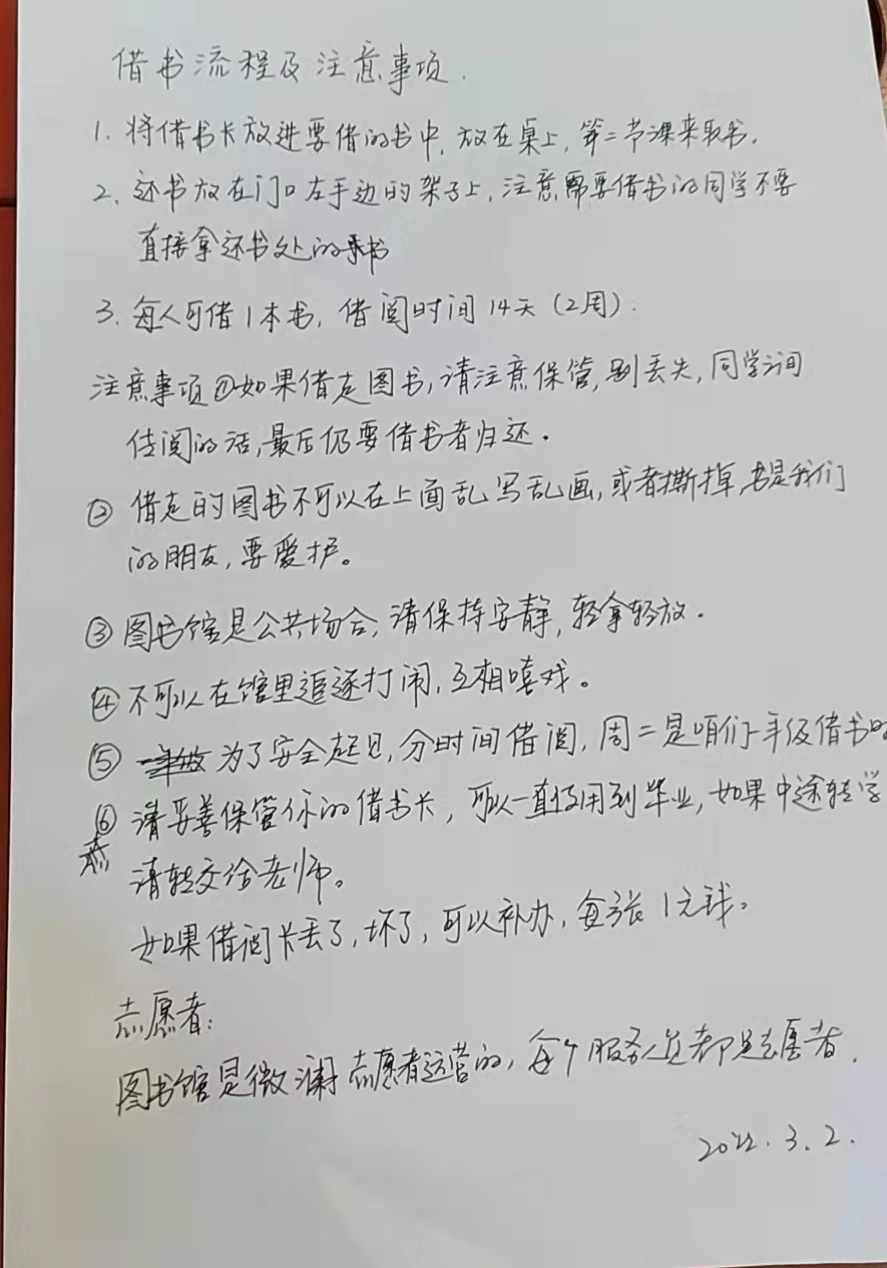 借书流程及注意事项.
1. 将借书卡放进要借的书中, 放在桌上, 第二节课来取书.
2. 还书放在门口左手边的架子上, 注意需要借书的同学不要
直接拿还书处的书
3. 每人可借1本书, 借阅时间14天(2周).
注意事项①如果借走图书, 请注意保管, 别丢失, 同学之间
传阅的话, 最后仍要借书者归还.
② 借走的图书不可以在上面乱写乱画, 或者撕掉, 书是我们
的朋友, 要爱护。
③ 图书馆是公共场合, 请保持安静, 轻拿轻放.
④ 不可以在馆里追逐打闹, 互相嘻戏。
⑤ 为了安全起见, 分时间借阅, 周二是咱们一年级借书时
⑥ 请妥善保管你的借书卡, 可以一直使用到毕业, 如果中途转学
请转交给老师。
如果借阅卡丢了, 坏了, 可以补办, 每张1元钱。
志愿者:
图书馆是微澜志愿者运营的, 每个服务人员都是志愿者.
2022.3.2.